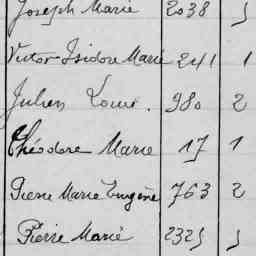 Joseph Marie 2038 5
Victor Isidore Marie 241 1
Julien Louis. 980 2
Théodore Marie 17 1
Pierre Marie Eugène 763 2
Pierre Marie 2325 5